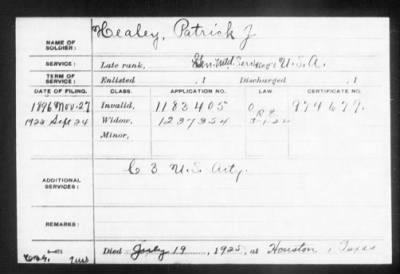 NAME OF SOLDIER: Healey, Patrick J
SERVICE: Late rank, Gen. Mtd. Service U.S.A.
TERM OF SERVICE: Enlisted , 1 Discharged , 1
DATE OF FILING. CLASS. APPLICATION NO. LAW. CERTIFICATE NO.
1896 Nov. 27 Invalid, 1183405
Widow, 1237954
Minor,
ADDITIONAL SERVICES: C 3 U.S. Arty.
REMARKS:
Died July 19, 1925, at Houston, Texas